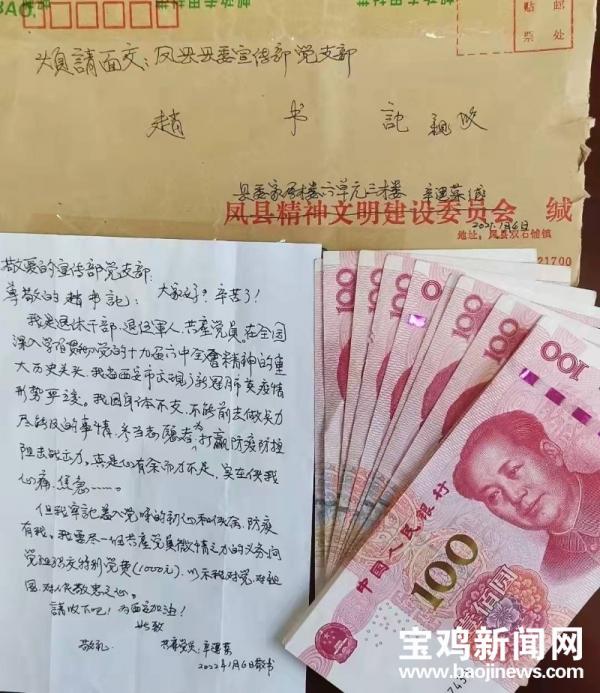 BAO.
贴 邮
票 处
烦請面交：凤县县委宣传部党支部
趙 书 記 親收
县委家属楼六单元三楼 辛運菜缄
凤县精神文明建设委员会 缄
2021.1月6日
地址：凤县双石铺镇
721700
敬爱的宣传部党支部：
尊敬的趙书記： 大家好？辛苦了！
我是退休干部、退伍軍人、共產党員。在全国
深入学習贯彻党的十九届六中全會精神的重
大历史关头，我省西安市出现了新冠肺炎疫情
形势严峻。我因身体不支，不能前去做
尽能及的事情，打赢防疫防控
阻击战出力，真是心有余而力不足，实在使我
心痛、焦急……。
但我牢記
有我。我要尽一個共產党員微情之力的义务向
党组织交特别党费（1000元），以示我对党、对祖
国、对人民敬忠之心。
請收下吧！为西安加油！
此致
敬礼
共產党員：辛運菜
2022年1月6日敬书
100
100
100
100
100
100
100
中国人民银行
100
壹佰圆
宝鸡新闻网
www.baojinews.com